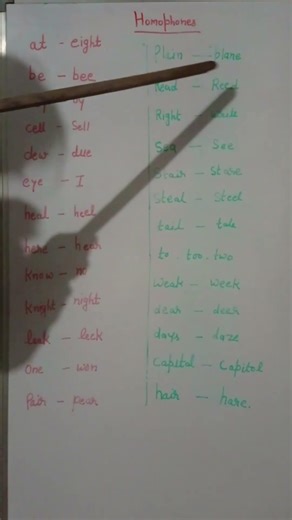 Homophones
at - eight
be - bee
by
cell - sell
dew - due
eye - I
heal - heel
here - hear
Know - no
Knight - night
leak - leek
One - won
Pair - pear
Plain - plane
Read - Reed
Right
Sea - See
Stare
Steal - Steel
tail - tale
to - too - two
weak - week
dear - deer
days - daze
Capital - Capitol
hair - hare.